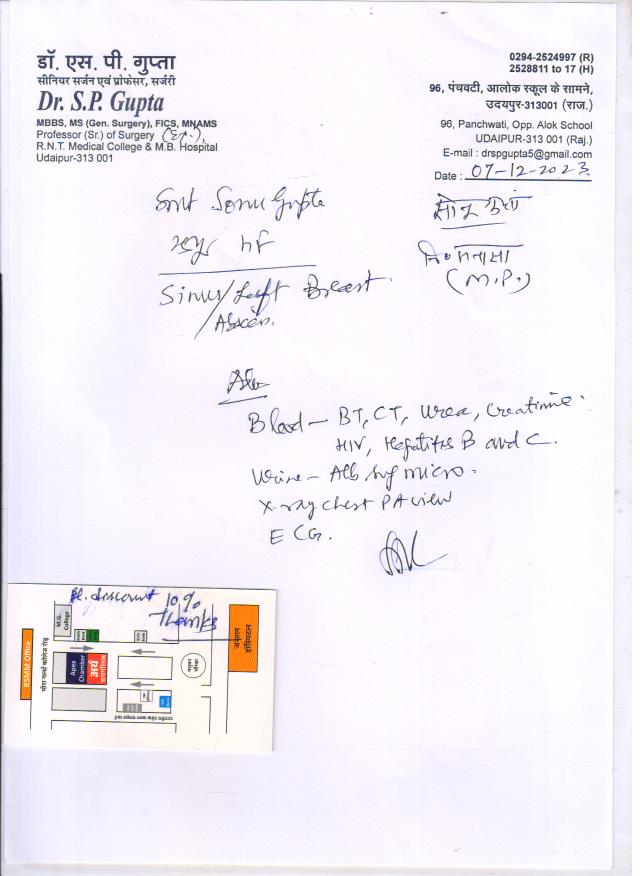 डॉ. एस. पी. गुप्ता
सीनियर सर्जन एवं प्रोफेसर, सर्जरी
Dr. S.P. Gupta
MBBS, MS (Gen. Surgery), FICS, MNAMS
Professor (Sr.) of Surgery (Ex.),
R.N.T. Medical College & M.B. Hospital
Udaipur-313 001
0294-2524997 (R)
2528811 to 17 (H)
96, पंचवटी, आलोक स्कूल के सामने,
उदयपुर-313001 (राज.)
96, Panchwati, Opp. Alok School
UDAIPUR-313 001 (Raj.)
E-mail : drspgupta5@gmail.com
Date : 07-12-2023
Smt Sonu Gupta
(M.P.)
Sinus/Left Breast
Blood - BT, CT, Urea, Creatinine.
HIV, Hepatitis B and C.
Urine - Alb Sug micro.
X-ray chest PA view
ECG.
Pl. discount 10%
Thanks
M.G. College
BSNM Office
Apex Chamber
अर्थ
जनरल हॉस्पिटल